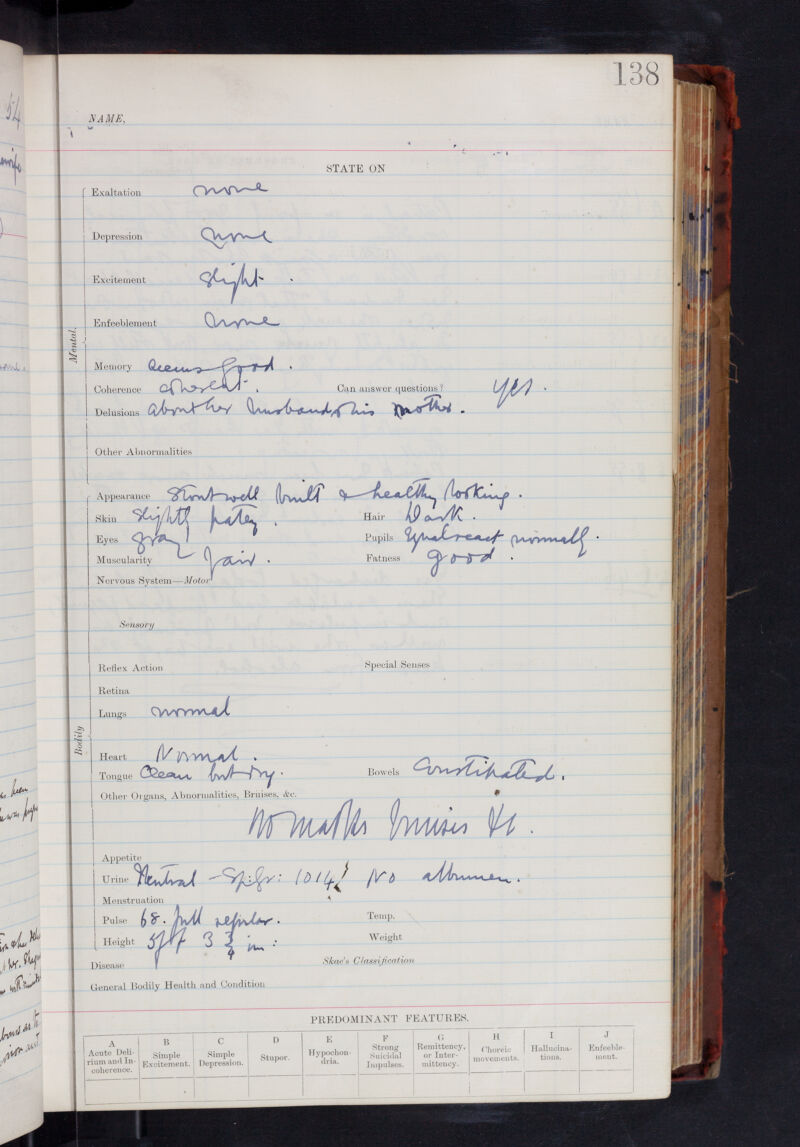 138
NAME.
STATE ON
Mental.
Exaltation none
Depression none
Excitement Slight.
Enfeeblement none
Memory seems good.
Coherence coherent. Can answer questions? yes.
Delusions about her husband & his mother.
Other Abnormalities
Bodily
Appearance Stout well built & healthy looking.
Skin Slightly patey. Hair Dark.
Eyes gray Pupils Equal react normally.
Muscularity fair. Fatness good.
Nervous System—Motor
Sensory
Reflex Action Special Senses
Retina
Lungs normal
Heart Normal.
Tongue Clean but dry. Bowels Constipated.
Other Organs, Abnormalities, Bruises, &c.
No marks bruises &c.
Appetite
Urine Neutral - Sp: Gr: 1014 No albumen.
Menstruation
Pulse 68. full regular. Temp.
Height 5 ft 3 3/4 in: Weight
Disease Skae's Classification
General Bodily Health and Condition
PREDOMINANT FEATURES.
A B C D E F G H I J
Acute Delirium and Incoherence. Simple Excitement. Simple Depression. Stupor. Hypochondria. Strong Suicidal Impulses. Remittency, or Intermittency. Choreic movements. Hallucinations. Enfeeblement.